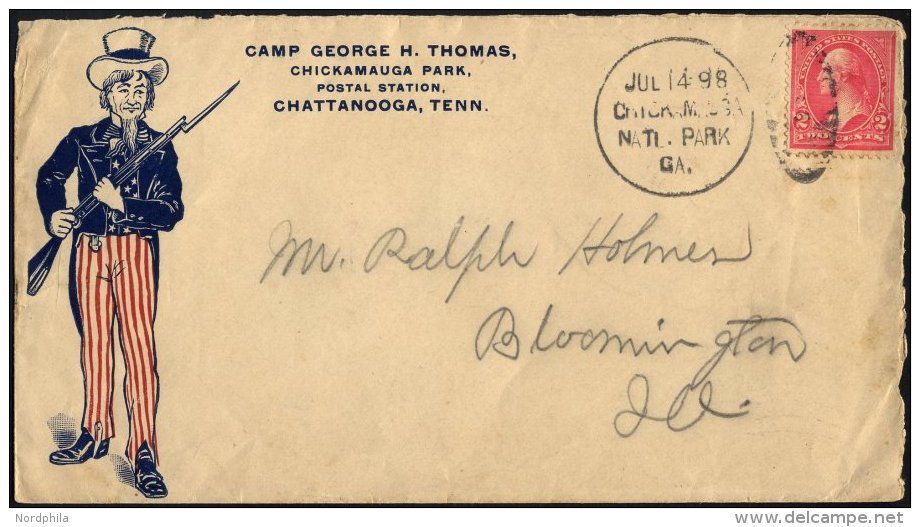 CAMP GEORGE H. THOMAS,
CHICKAMAUGA PARK,
POSTAL STATION,
CHATTANOOGA, TENN.
JUL 14 98
CHICKAMAUGA
NATL. PARK
GA.
UNITED STATES POSTAGE
2 2
TWO CENTS
Mr. Ralph Holmes
Bloomington
Ill.
Nordphila
www.delcampe.net